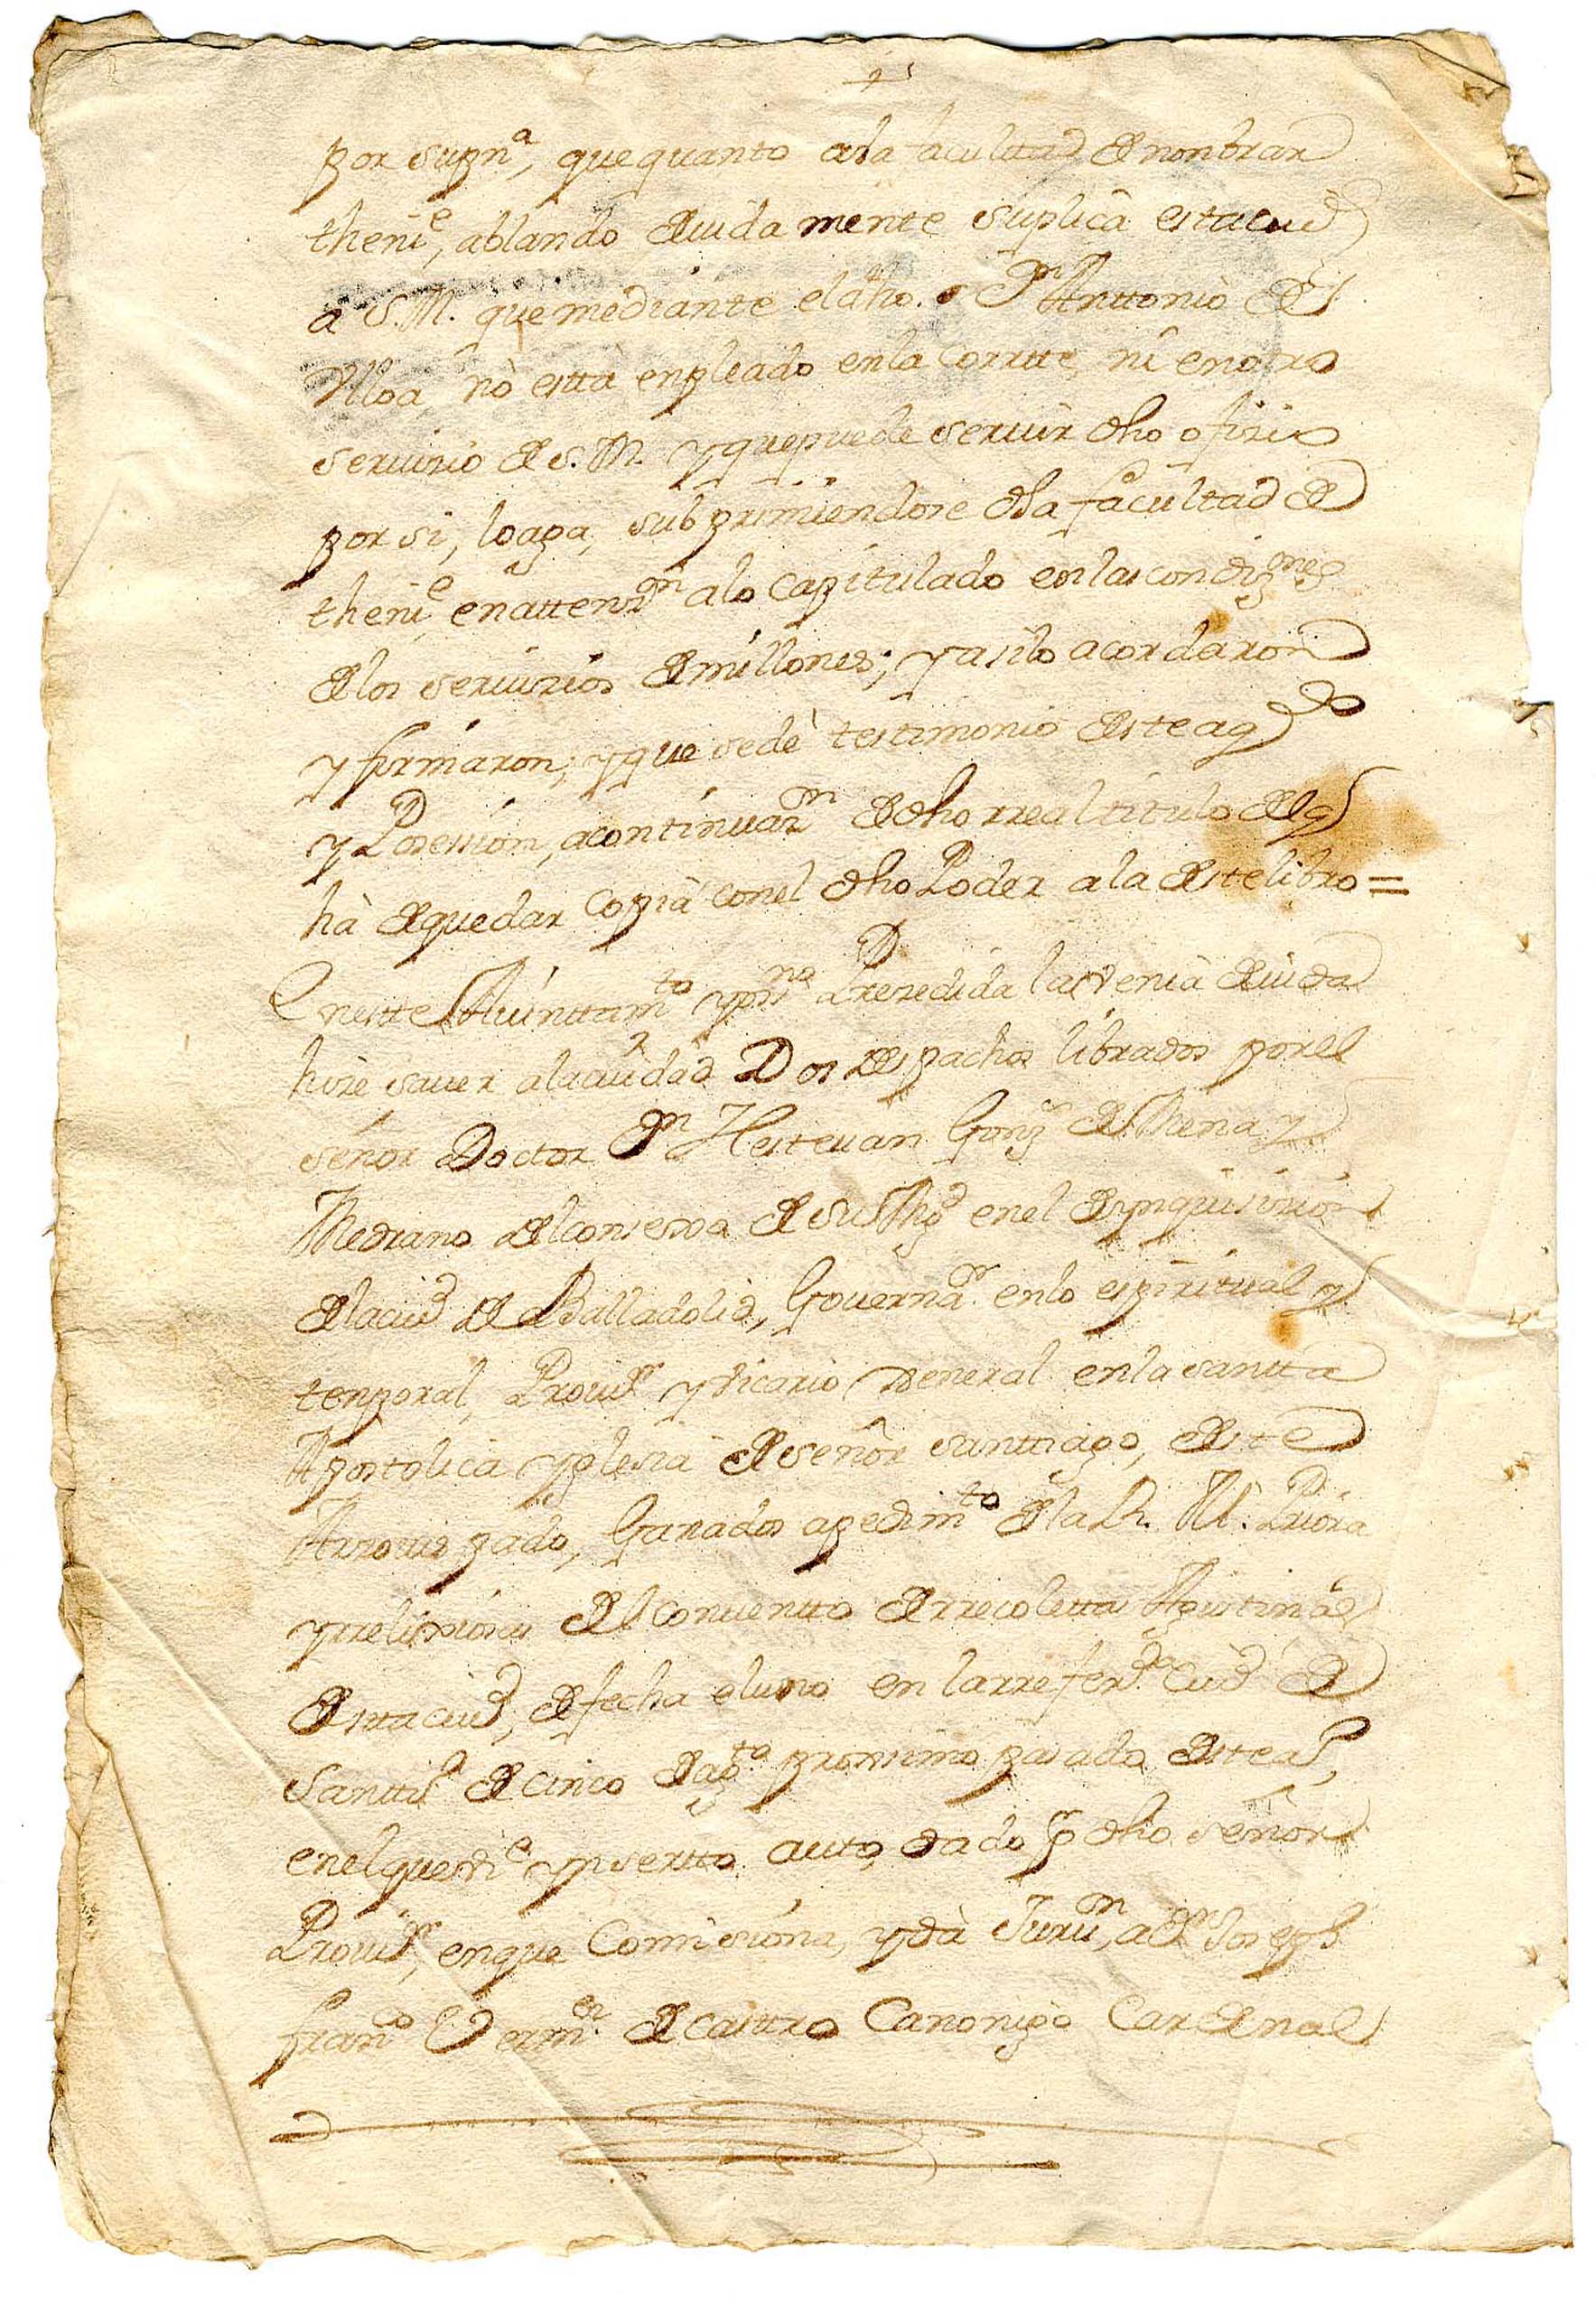 por supnª, que quanto ala facultad de nonbrar
theniᵉ, ablando devidamente suplicà esta ciud
a S.M. que mediante el dho. Dⁿ Anttonio de
Ulloa nò està enpleado en la Cortte, ni en otro
servicio de S.M. y que puede servir dho ofizio
por si, lo aga, subprimiendose dha facultad de
theniᵉ, en attenzⁿ alo Capitulado en las condizⁿᵉˢ
de los servicios de millones; y asi lo acordaron
y firmaron; y que se dè testimonio de este agᵈᵒ
y Posession, a continuazⁿ de dho rreal titulo del q
hà de quedar Copià con el dho Poder a la de este libro =
En este Aiunttamᵗᵒ y Prezedida la venia devida
hize saver a la ciudad Dos despachos librados por el
señor Doctor Dⁿ Hestevan Gonz de Mena y
Medrano del consexo de su Mgᵈ en el de ynquisicion
de la ciud de Balladolid, Governᵃʳ en lo espiritual y
tenporal, Provisʳ y vicario General en la santta
Apostolica yglesia de señor santtiago, de este
Arzovispado, Ganados a pedimᵗᵒ de la R. M. Priora
y rrelixiosas del Convento de rrecolettas Agustinas
de estta ciud, de fecha el uno en la rreferᵈᵃ Ciud de
Santtiᵒ de cinco de agᵗᵒ proximo pasado de este aº,
en el que diᵉ ynsertto auto, dado p dho señor
Provisʳ, en que Comisiona, y dà Jurizⁿ, a Dⁿ Joseph
franᶜᵒ Vermᵉᶻ de Castro Canonigo Cardenal